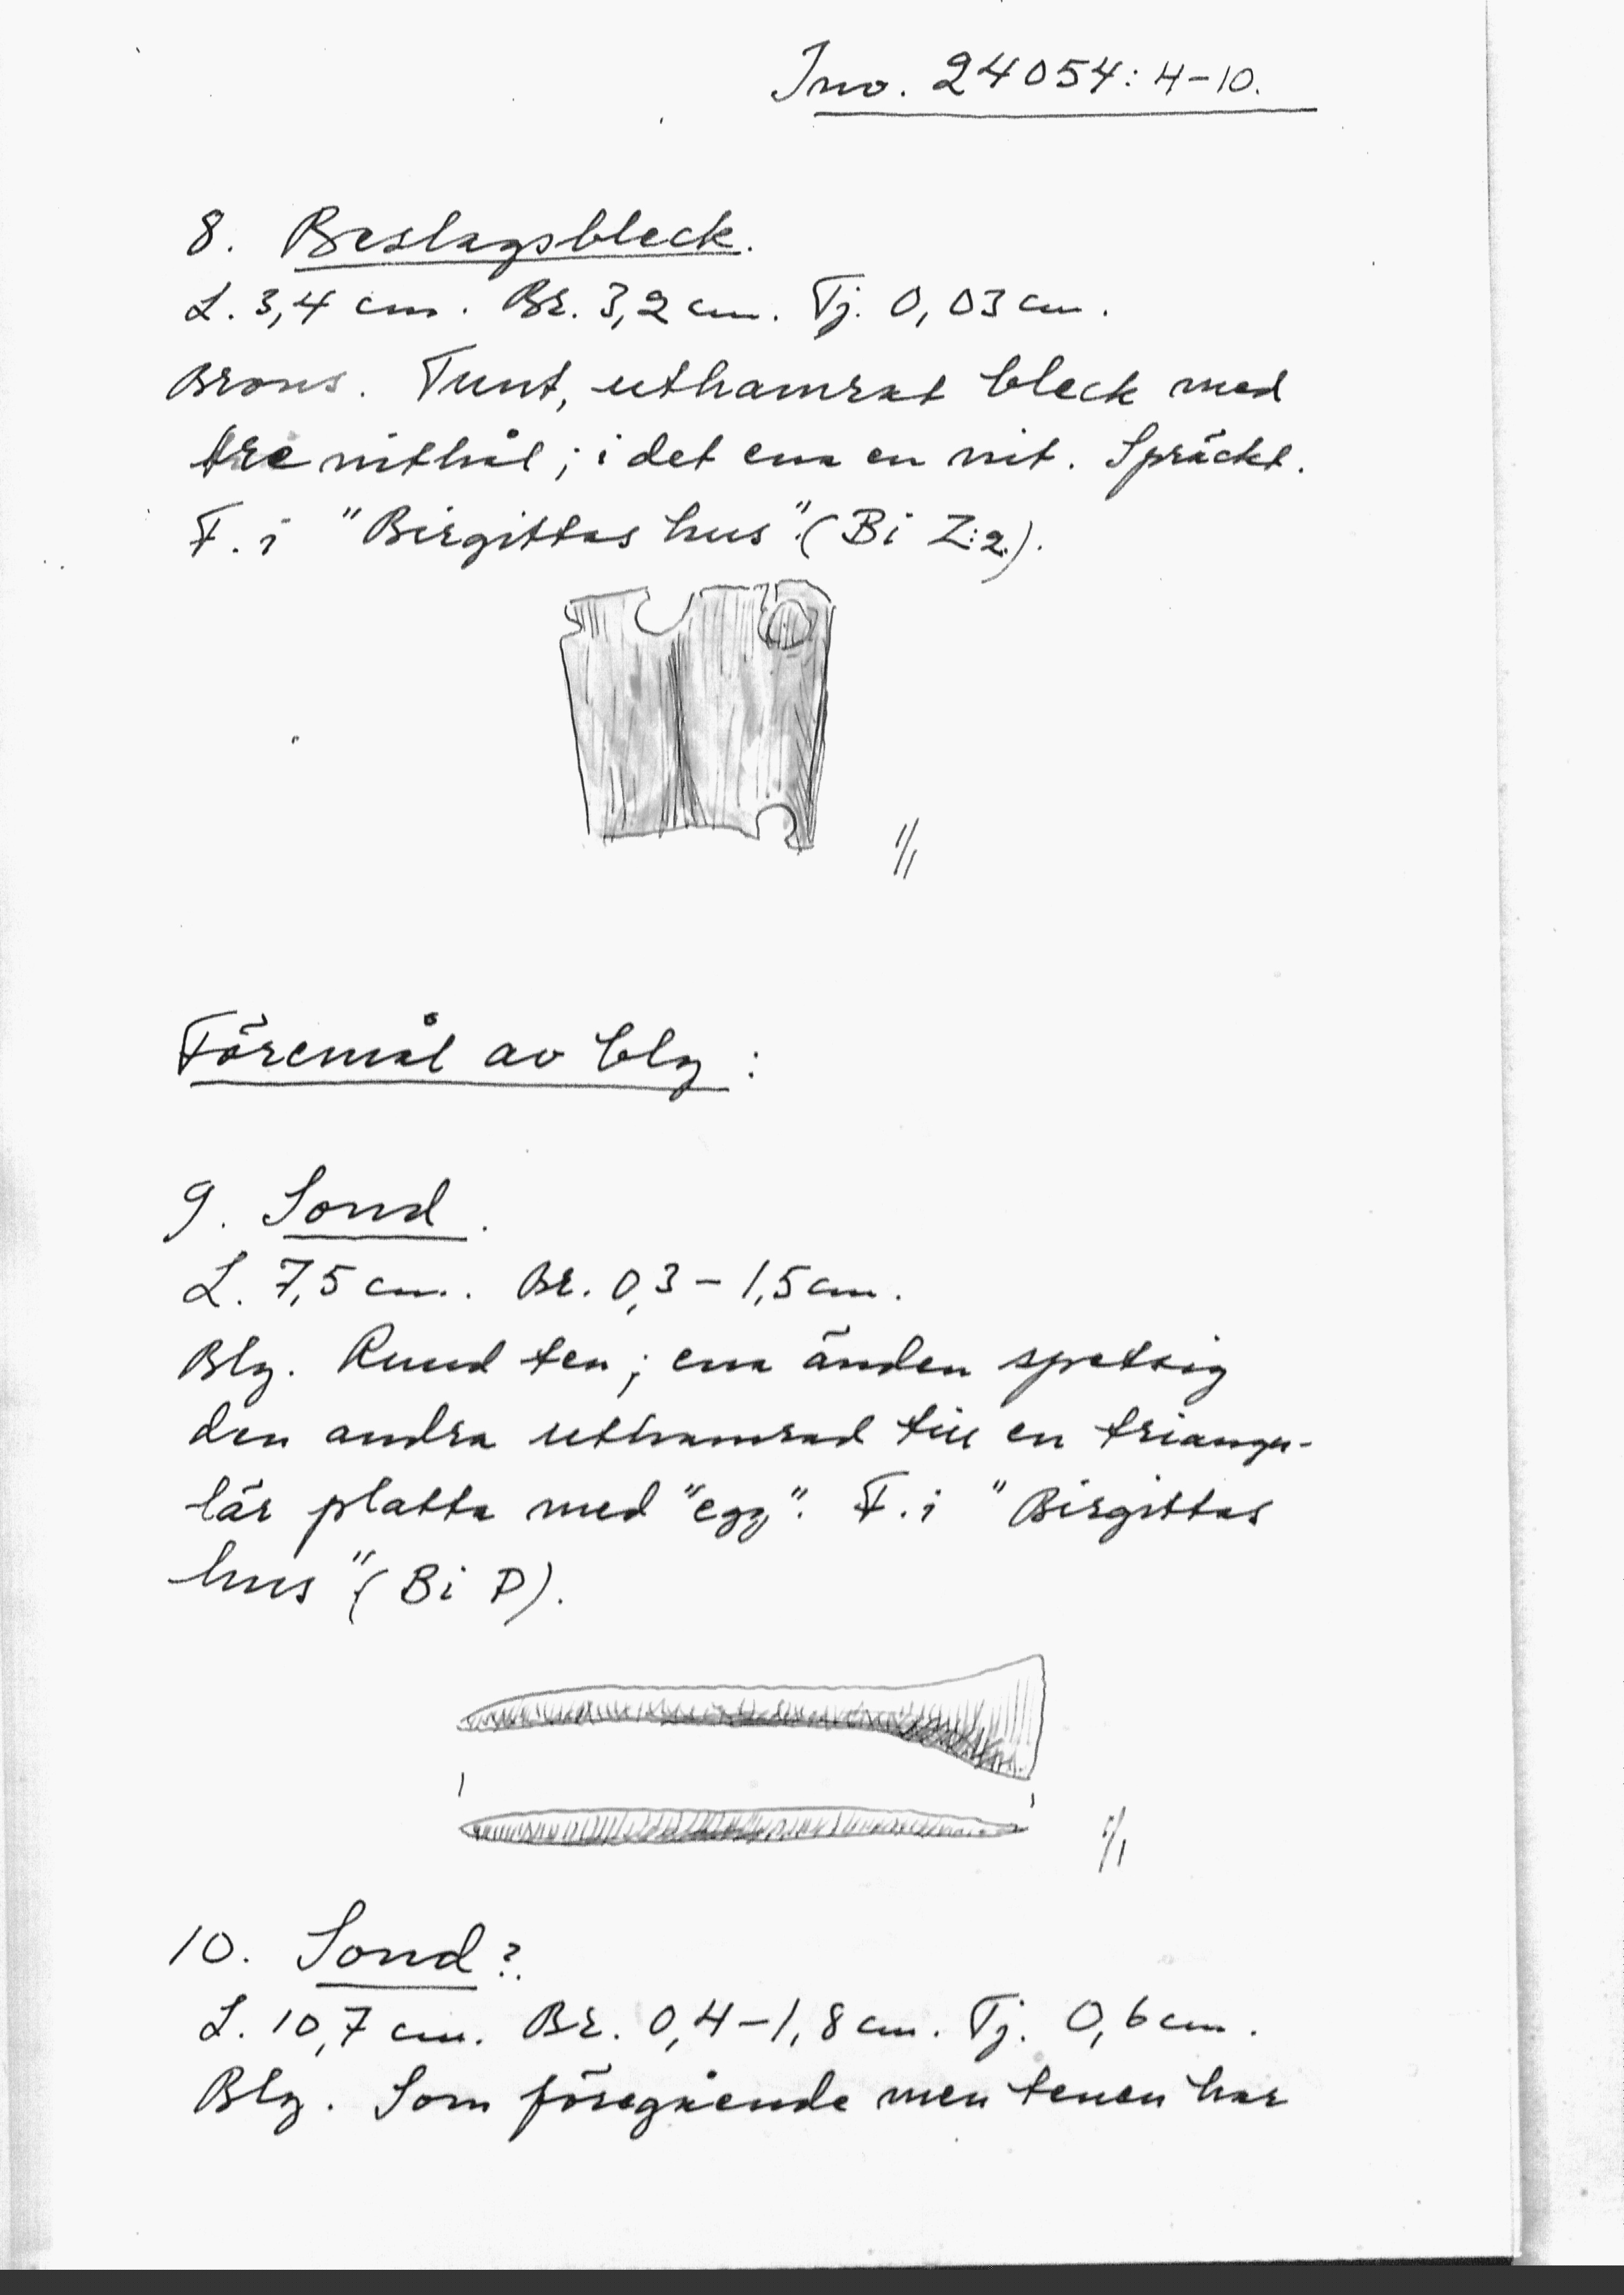 Inv. 24054: 4-10.
8. Beslagsbleck.
L. 3,4 cm. Br. 3,2 cm. Tj. 0,03 cm.
Brons. Tunt, uthamrat bleck med
tre nithål; i det ena en nit. Spräckt.
F. i "Birgittas hus". (Bi Z:2.).
1/1
Föremål av bly:
9. Sond.
L. 7,5 cm. Br. 0,3 - 1,5 cm.
Bly. Rund ten; ena änden spetsig
den andra uthamrad till en triangu-
lär platta med "egg". F. i "Birgittas
hus" (Bi D).
1/1
10. Sond?.
L. 10,7 cm. Br. 0,4-1,8 cm. Tj. 0,6 cm.
Bly. Som föregående men tenen har